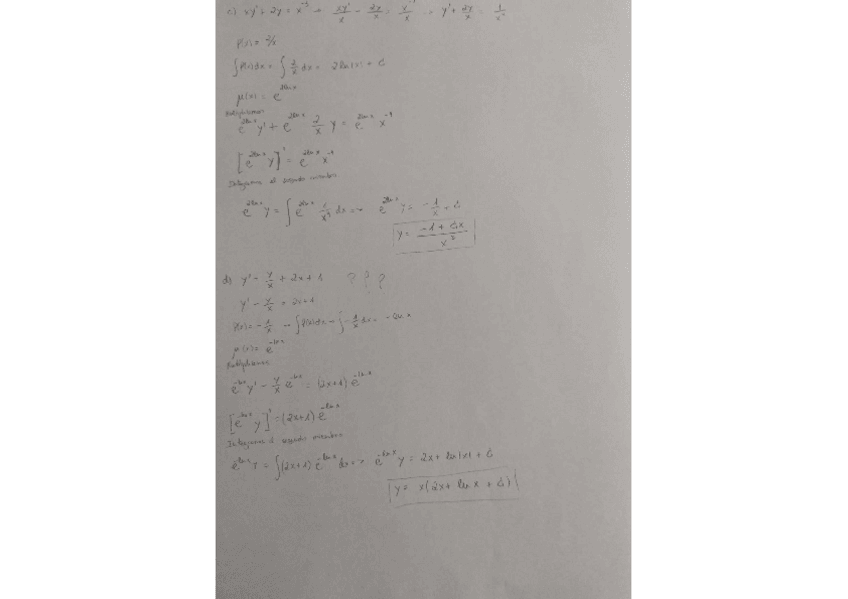 c) xy' + 2y = x⁻³ → xy'/x + 2y/x = x⁻³/x → y' + 2y/x = 1/x⁴
P(x) = 2/x
∫P(x)dx = ∫ 2/x dx = 2ln|x| + C
μ(x) = e^(2ln x)
Multiplicamos
e^(2ln x) y' + e^(2ln x) 2/x y = e^(2ln x) x⁻⁴
[e^(2ln x) y]' = e^(2ln x) x⁻⁴
Integramos el segundo miembro
e^(2ln x) y = ∫ e^(2ln x) 1/x⁴ dx → e^(2ln x) y = -1/x + C
y = (-1 + Cx)/x²
d) y' - y/x + 2x + 1 ? ? ?
y' - y/x = 2x+1
P(x) = -1/x → ∫P(x)dx = ∫ -1/x dx = -ln x
μ(x) = e^(-ln x)
Multiplicamos
e^(-ln x) y' - y/x e^(-ln x) = (2x+1) e^(-ln x)
[e^(-ln x) y]' = (2x+1) e^(-ln x)
Integramos el segundo miembro
e^(-ln x) y = ∫(2x+1) e^(-ln x) dx → e^(-ln x) y = 2x + ln|x| + C
y = x(2x + ln x + C)